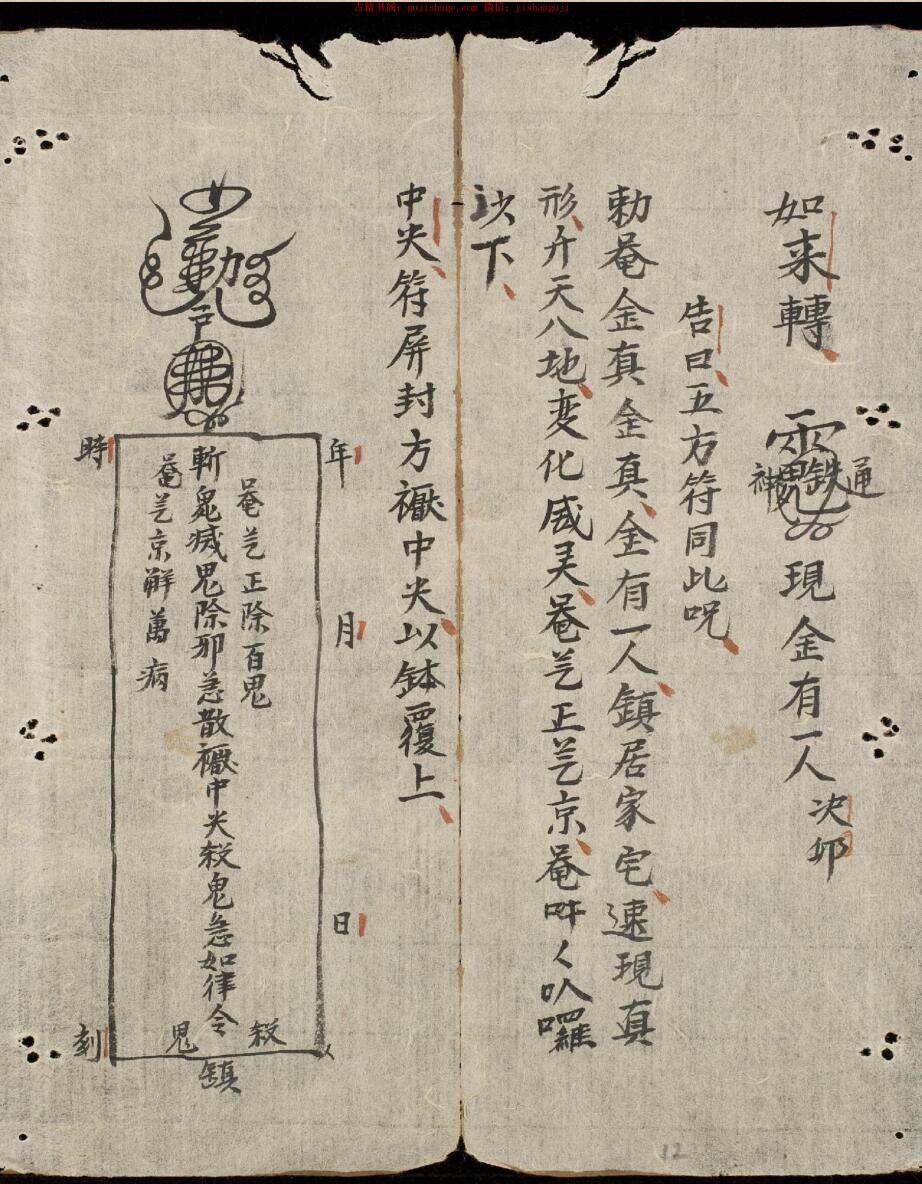 古籍书阁：gujishuge.com 微信：yishanguji
如来轉
現金有一人
神鬼鉄通
决卯
告曰五方符同此呪
勅菴金真金真金有一人鎮居家宅速現真
形斤天八地変化威灵菴𫇭正𫇭京菴吽〻叺囉
以下
中央符屏封方禳中央以鉢覆上
年
月
日
時
刻
菴𫇭正除百鬼
斬鬼㓕鬼除邪急散禳中央殺鬼急如律令
菴𫇭京解萬病
殺鬼
鎮
12